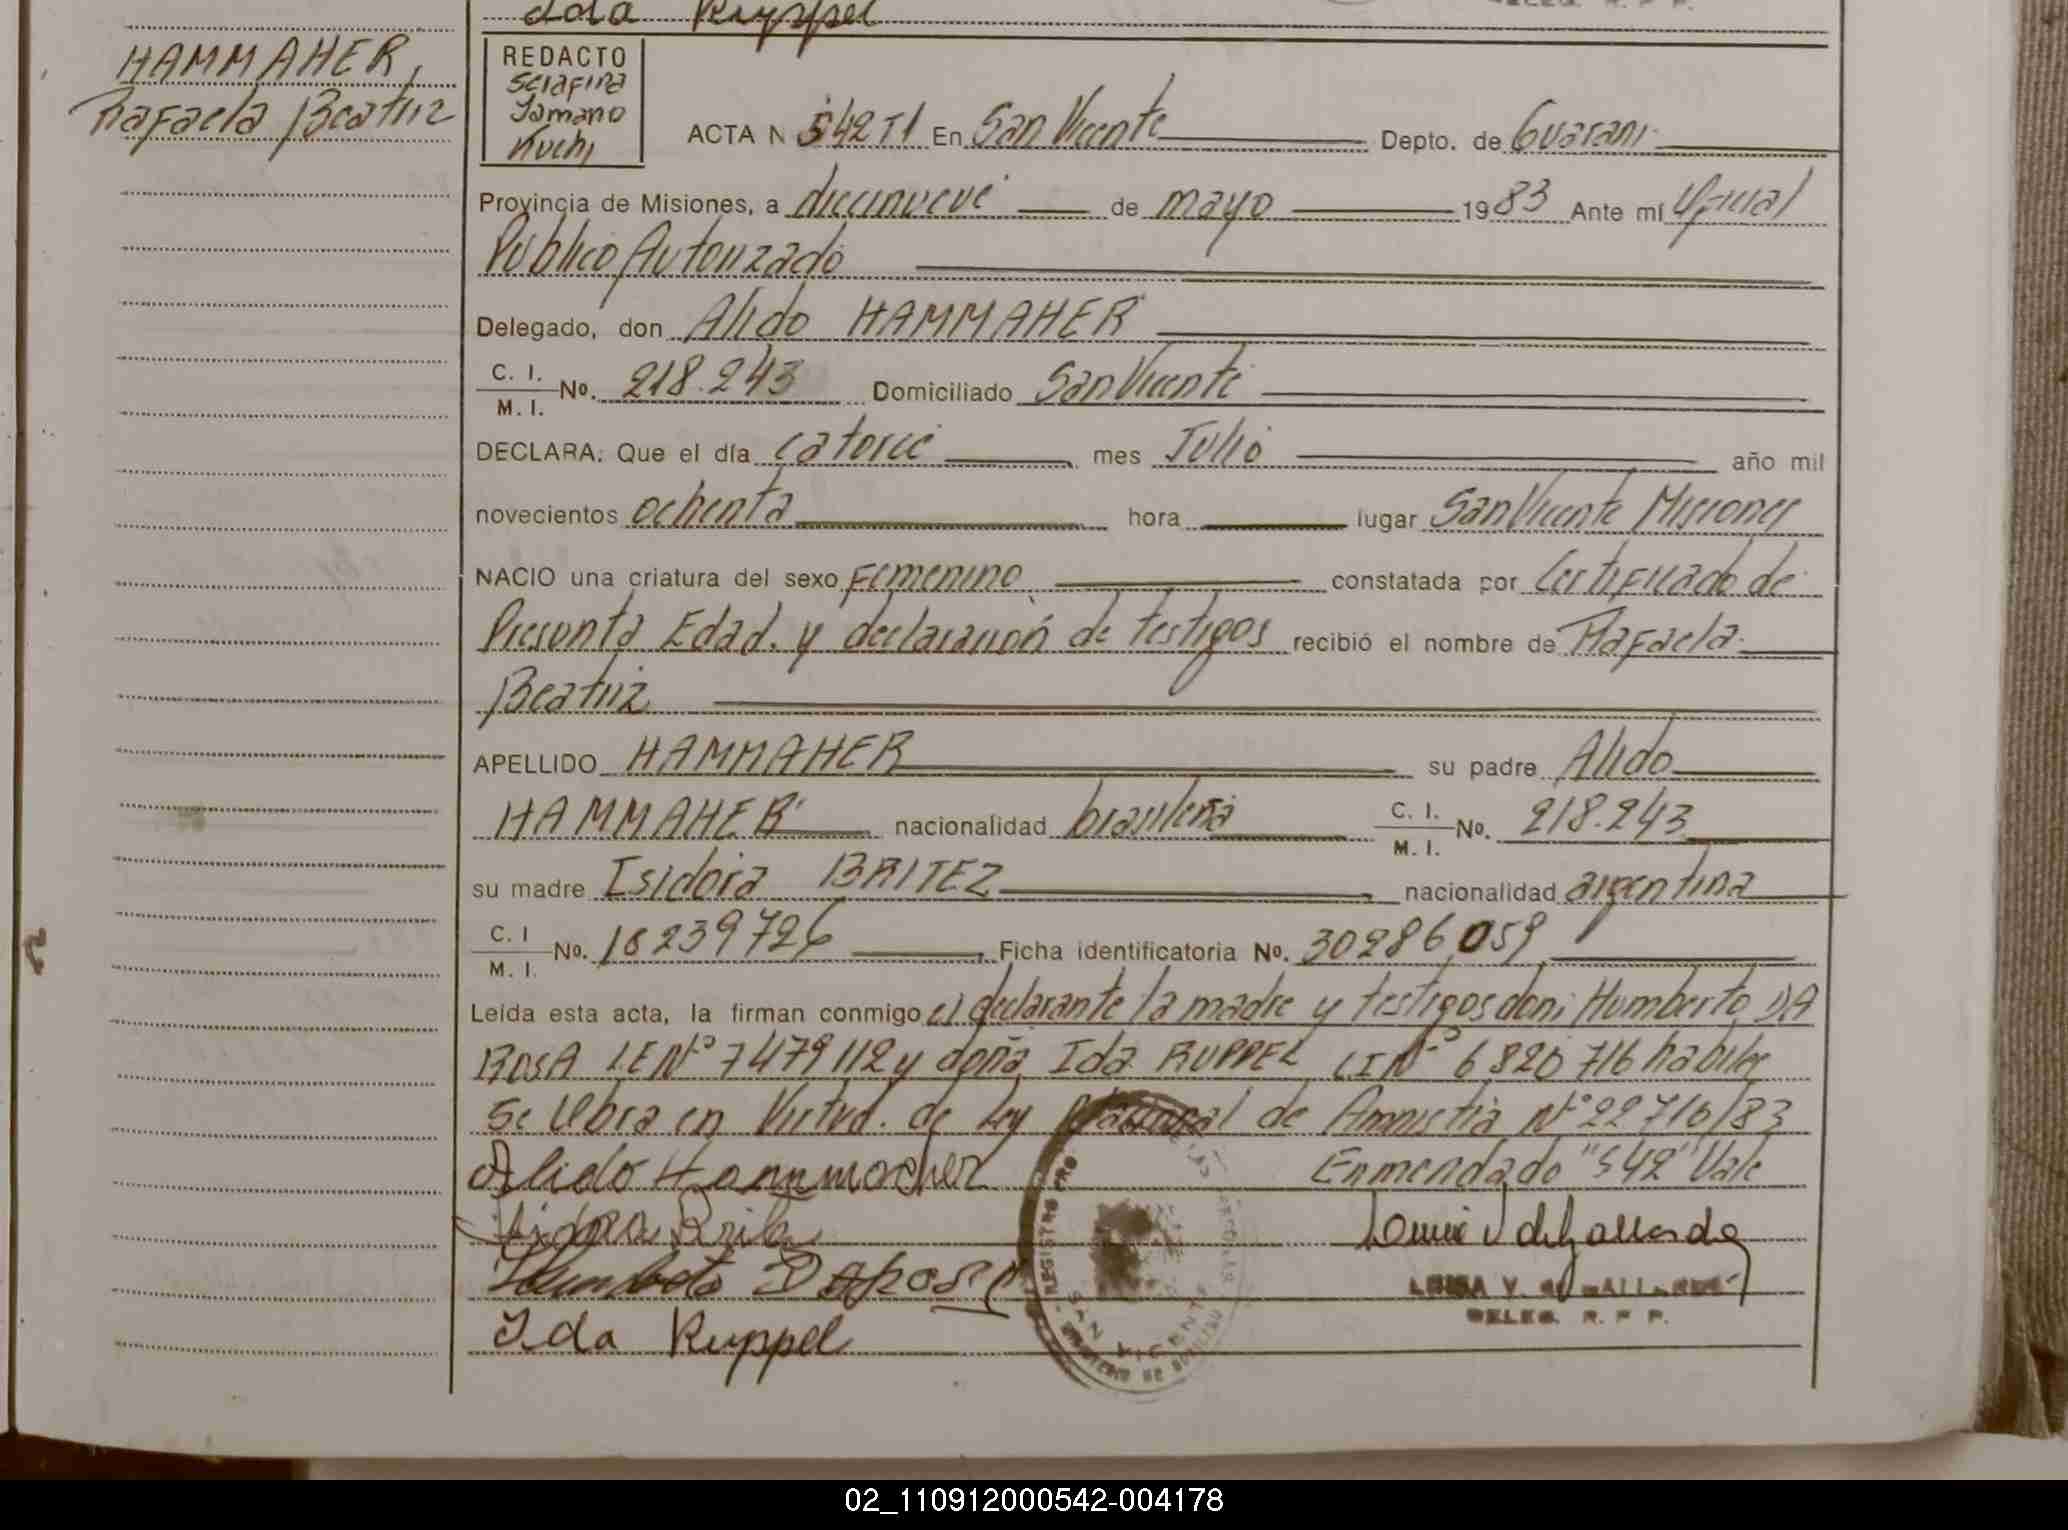 Ida Ruppel
HAMMAHER,
Rafaela Beatriz
REDACTO
Serafina
Yamano
Kuchi
ACTA N 542 T1 En San Vicente Depto. de Guarani
Provincia de Misiones, a diecinueve de mayo 1983 Ante mí Oficial
Publico Autorizado
Delegado, don Alido HAMMAHER
C. I.
M. I. No. 218.243 Domiciliado San Vicente
DECLARA: Que el día catorce mes Julio año mil
novecientos ochenta hora lugar San Vicente Misiones
NACIO una criatura del sexo Femenino constatada por Certificado de
Presunta Edad. y declaración de testigos recibió el nombre de Rafaela
Beatriz
APELLIDO HAMMAHER su padre Alido
HAMMAHER nacionalidad brasileña C. I.
M. I. No. 218.243
su madre Isidora BRITEZ nacionalidad argentina
C. I
M. I. No. 18239726 Ficha identificatoria No. 30286059
Leída esta acta, la firman conmigo el declarante la madre y testigos don: Humberto DA
ROSA LE Nº 7479112 y doña Ida RUPPEL CI Nº 6820716 habiles
Se labra en Virtud. de Ley Nacional de Amnistia Nº 22710/83
Alido Hannmacher Enmendado "542" Vale
Isidora Brite
Humberto Darosa
LUISA V. DE GALLARDO
DELEG. R. P. P.
Ida Ruppel
REGISTRO PRO
SAN VICENTE
02_110912000542-004178